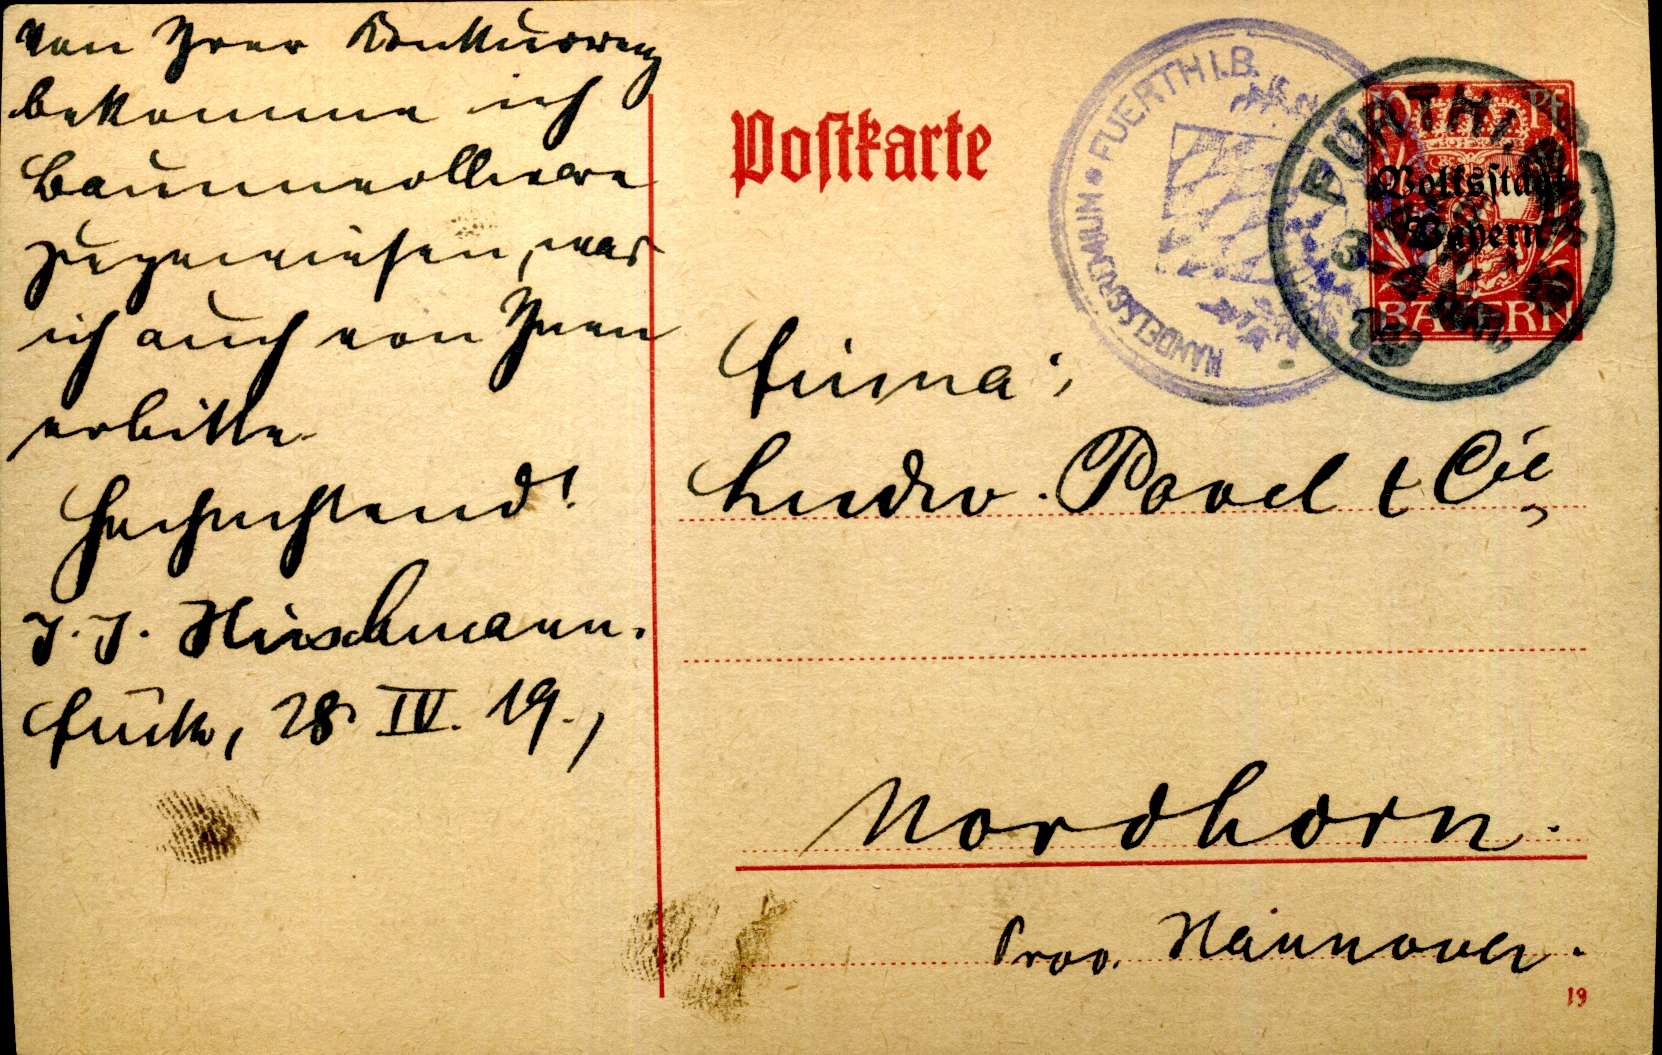 von Ihrer
bekomme ich
Baumwollware
zugewiesen, was
ich auch von Ihnen
erbitte.
Hochachtend!
J. J. Hirschmann.
Fürth, 28. IV. 19.,
Postkarte
HANDELSGREMIUM • FUERTH I.B.
FÜRTH
10 Pf
Volksstaat
Bayern
BAYERN
Firma:,
Ludw. Povel & Cie,
Nordhorn.
Prov. Hannover.
19